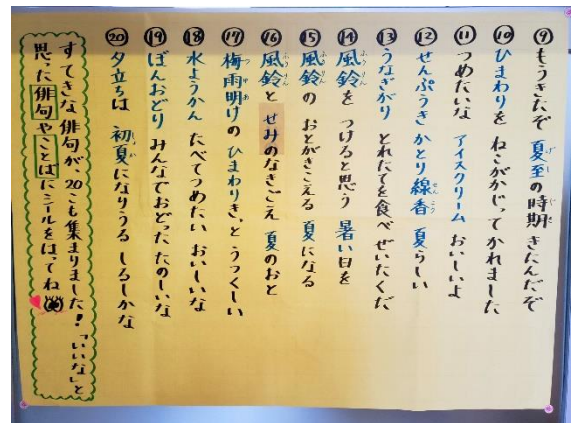 ⑨もうきたぞ 夏至の時期 きたんだぞ
⑩ひまわりを ねこがかじって かれました
⑪つめたいな アイスクリーム おいしいよ
⑫せんぷうき かとり線香 夏らしい
⑬うなぎがり とれたてを食べ ぜいたくだ
⑭風鈴を つけると思う 暑い日を
⑮風鈴の おとがきこえる 夏になる
⑯風鈴と せみのなきごえ 夏のおと
⑰梅雨明けの ひまわりき,と うつくしい
⑱水ようかん たべてつめたい おいしいな
⑲ぼんおどり みんなでおどった たのしいな
⑳夕立ちは 初夏になりうる しるしかな
すてきな俳句が、20こも集まりました!「いいな」と
思った俳句やことばにシールをはってね